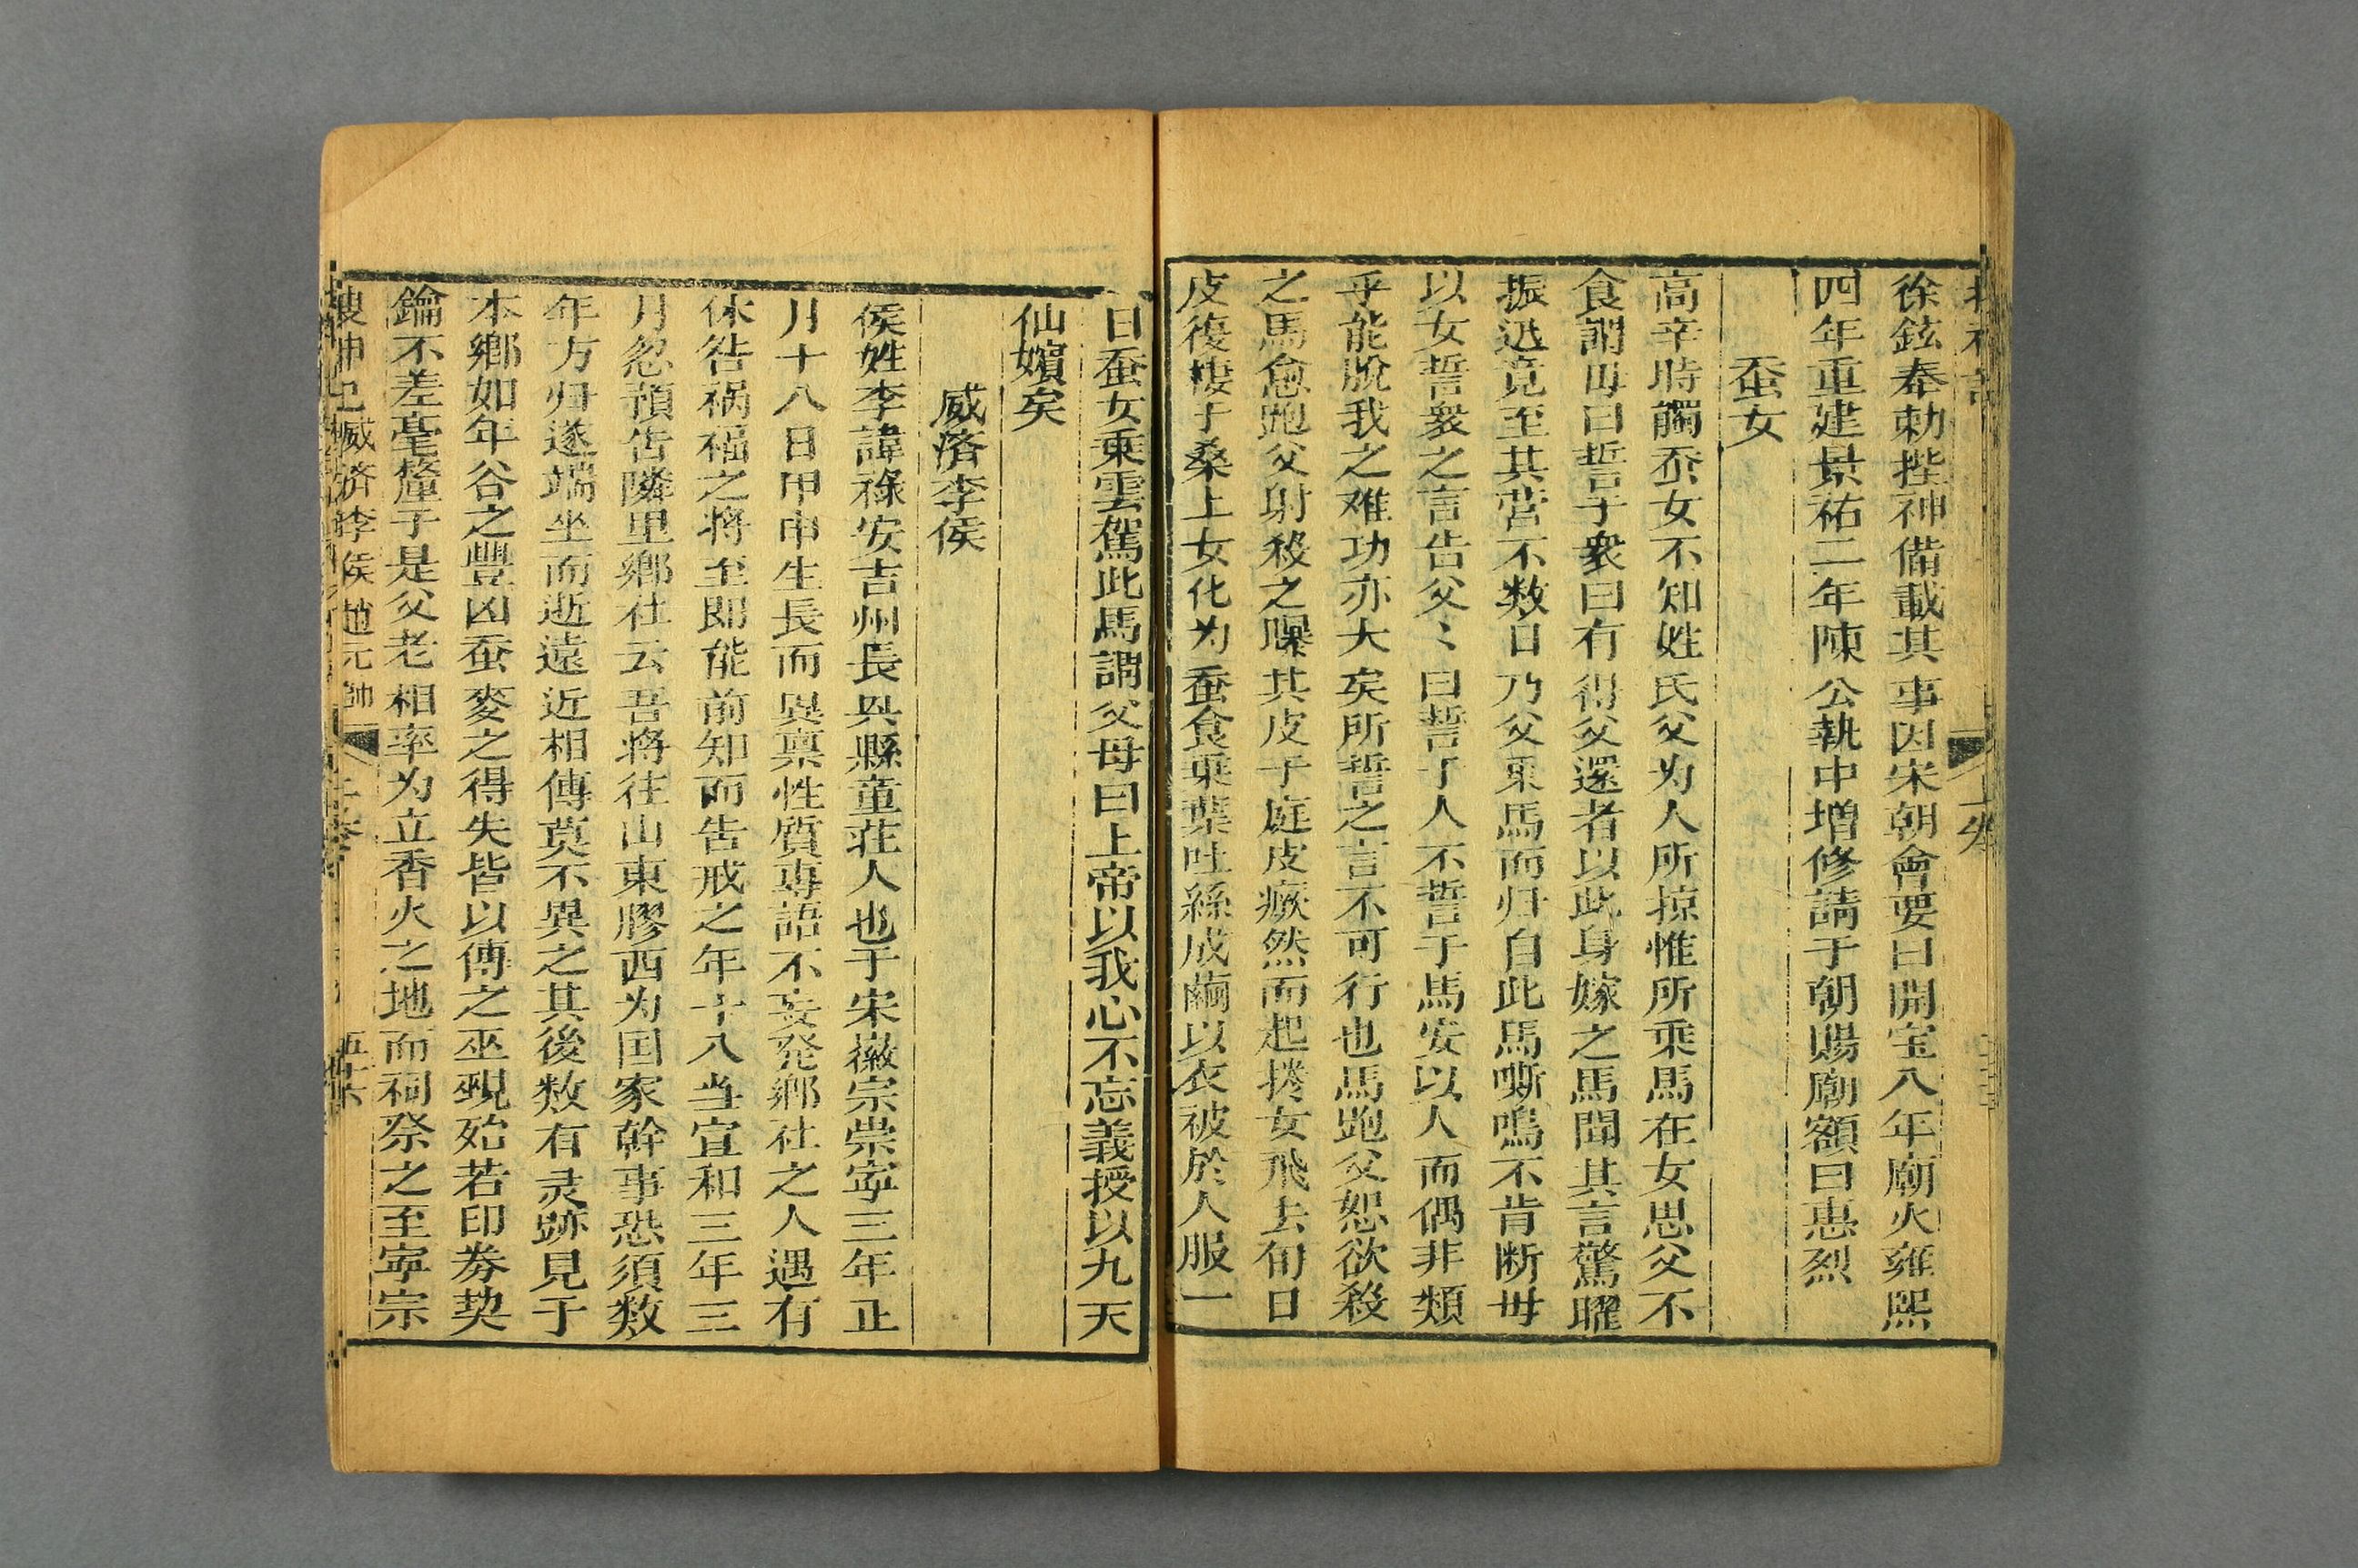 徐鉉奉勅撰神備載其事因宋朝會要曰開宝八年廟火雍熙
四年重建景祐二年陳公執中增修請于朝賜廟額曰惠烈
蚕女
高辛時蜀蚕女不知姓氏父为人所掠惟所乘馬在女思父不
食謂母曰誓于衆曰有得父還者以此身嫁之馬聞其言驚躍
振迅竟至其营不数日乃父乘馬而归自此馬嘶鳴不肯断母
以女誓衆之言告父〻曰誓于人不誓于馬安以人而偶非類
乎能脫我之难功亦大矣所誓之言不可行也馬跑父恕欲殺
之馬愈跑父射殺之曝其皮于庭皮瘚然而起捲女飛去旬日
皮復棲于桑上女化为蚕食桑葉吐絲成繭以衣被於人服一
日蚕女乘雲駕此馬謂父母曰上帝以我心不忘義授以九天
仙嬪矣
威濟李侯
侯姓李諱祿安吉州長兴縣童莊人也于宋徽宗崇寧三年正
月十八日甲申生長而異禀性質專語不妄発鄉社之人遇有
休咎祸福之将至即能前知而告戒之年十八当宣和三年三
月忽預告隣里鄉社云吾将往山東膠西为国家幹事恐須数
年方归遂端坐而逝遠近相傳莫不異之其後数有灵跡見于
本鄉如年谷之豐凶蚕麥之得失皆以傳之巫覡殆若印券契
鑰不差毫釐于是父老相率为立香火之地而祠祭之至寧宗
搜神記 威济李侯 趙元帥 上卷 五十六